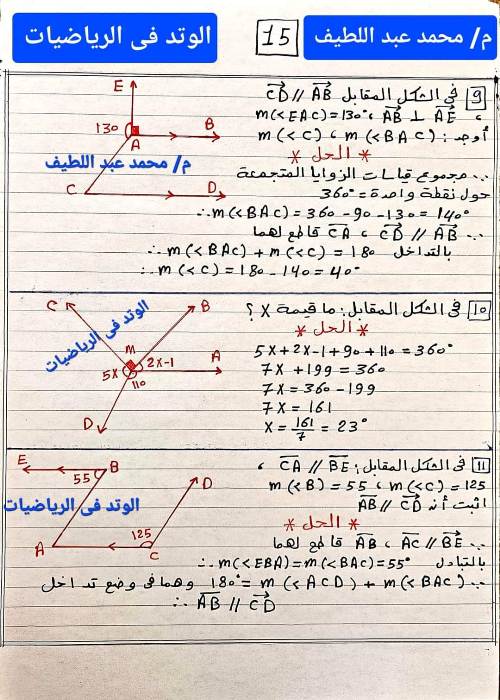 م/ محمد عبد اللطيف 15 الوتد فى الرياضيات
9 فى الشكل المقابل CD // AB
، AB ⊥ AE ، m(<EAC)=130°
أوجد: m(<BAC) ، m(<C)
* الحل *
∵ مجموع قياسات الزوايا المتجمعة
حول نقطة واحدة = 360°
∴ m(<BAC) = 360 - 90 - 130 = 140°
∵ CD // AB ، CA قاطع لهما
∴ m(<BAC) + m(<C) = 180 بالتداخل
∴ m(<C) = 180 - 140 = 40°
E
130
A
B
م/ محمد عبد اللطيف
C
D
10 فى الشكل المقابل: ما قيمة X ؟
* الحل *
5X + 2X - 1 + 90 + 110 = 360°
7X + 199 = 360
7X = 360 - 199
7X = 161
X = 161/7 = 23°
C
B
الوتد فى الرياضيات
M
5X
2X-1
A
110
D
11 فى الشكل المقابل: CA // BE ،
m(<B) = 55 ، m(<C) = 125
اثبت أنه AB // CD
* الحل *
∵ AC // BE ، AB قاطع لهما
∴ m(<EBA) = m(<BAC) = 55° بالتبادل
∵ m(<BAC) + m(<ACD) = 180° وهما فى وضع تداخل
∴ AB // CD
E
B
55
D
الوتد فى الرياضيات
125
A
C